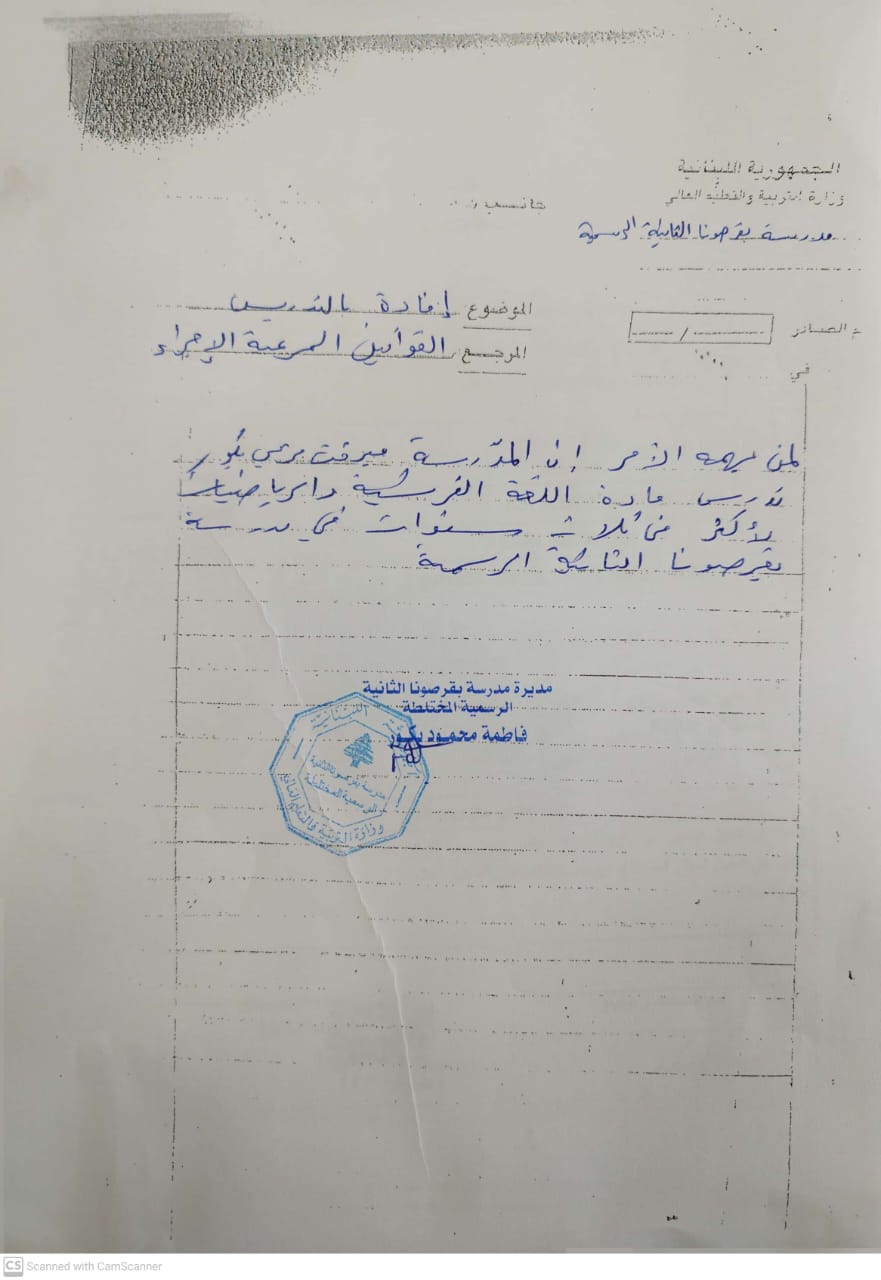 الجمهورية اللبنانية
وزارة التربية والتعليم العالي
جانب
مدرسة بقرصونا الثانية الرسمية
الموضوع إفادة بالتدريس
الصادر /
المرجع القوانين المرعية الإجراء
في
لمن يهمه الأمر إن المدرسة ميرفت مرعي بكور
تدرس مادة اللغة الفرنسية والرياضيات
لأكثر من ثلاث سنوات في مدرسة
بقرصونا الثانية الرسمية
مديرة مدرسة بقرصونا الثانية
الرسمية المختلطة
فاطمة محمود بكور
اللبنانية
مدرسة بقرصونا الثانية
الرسمية المختلطة
وزارة التربية والتعليم العالي
CS Scanned with CamScanner